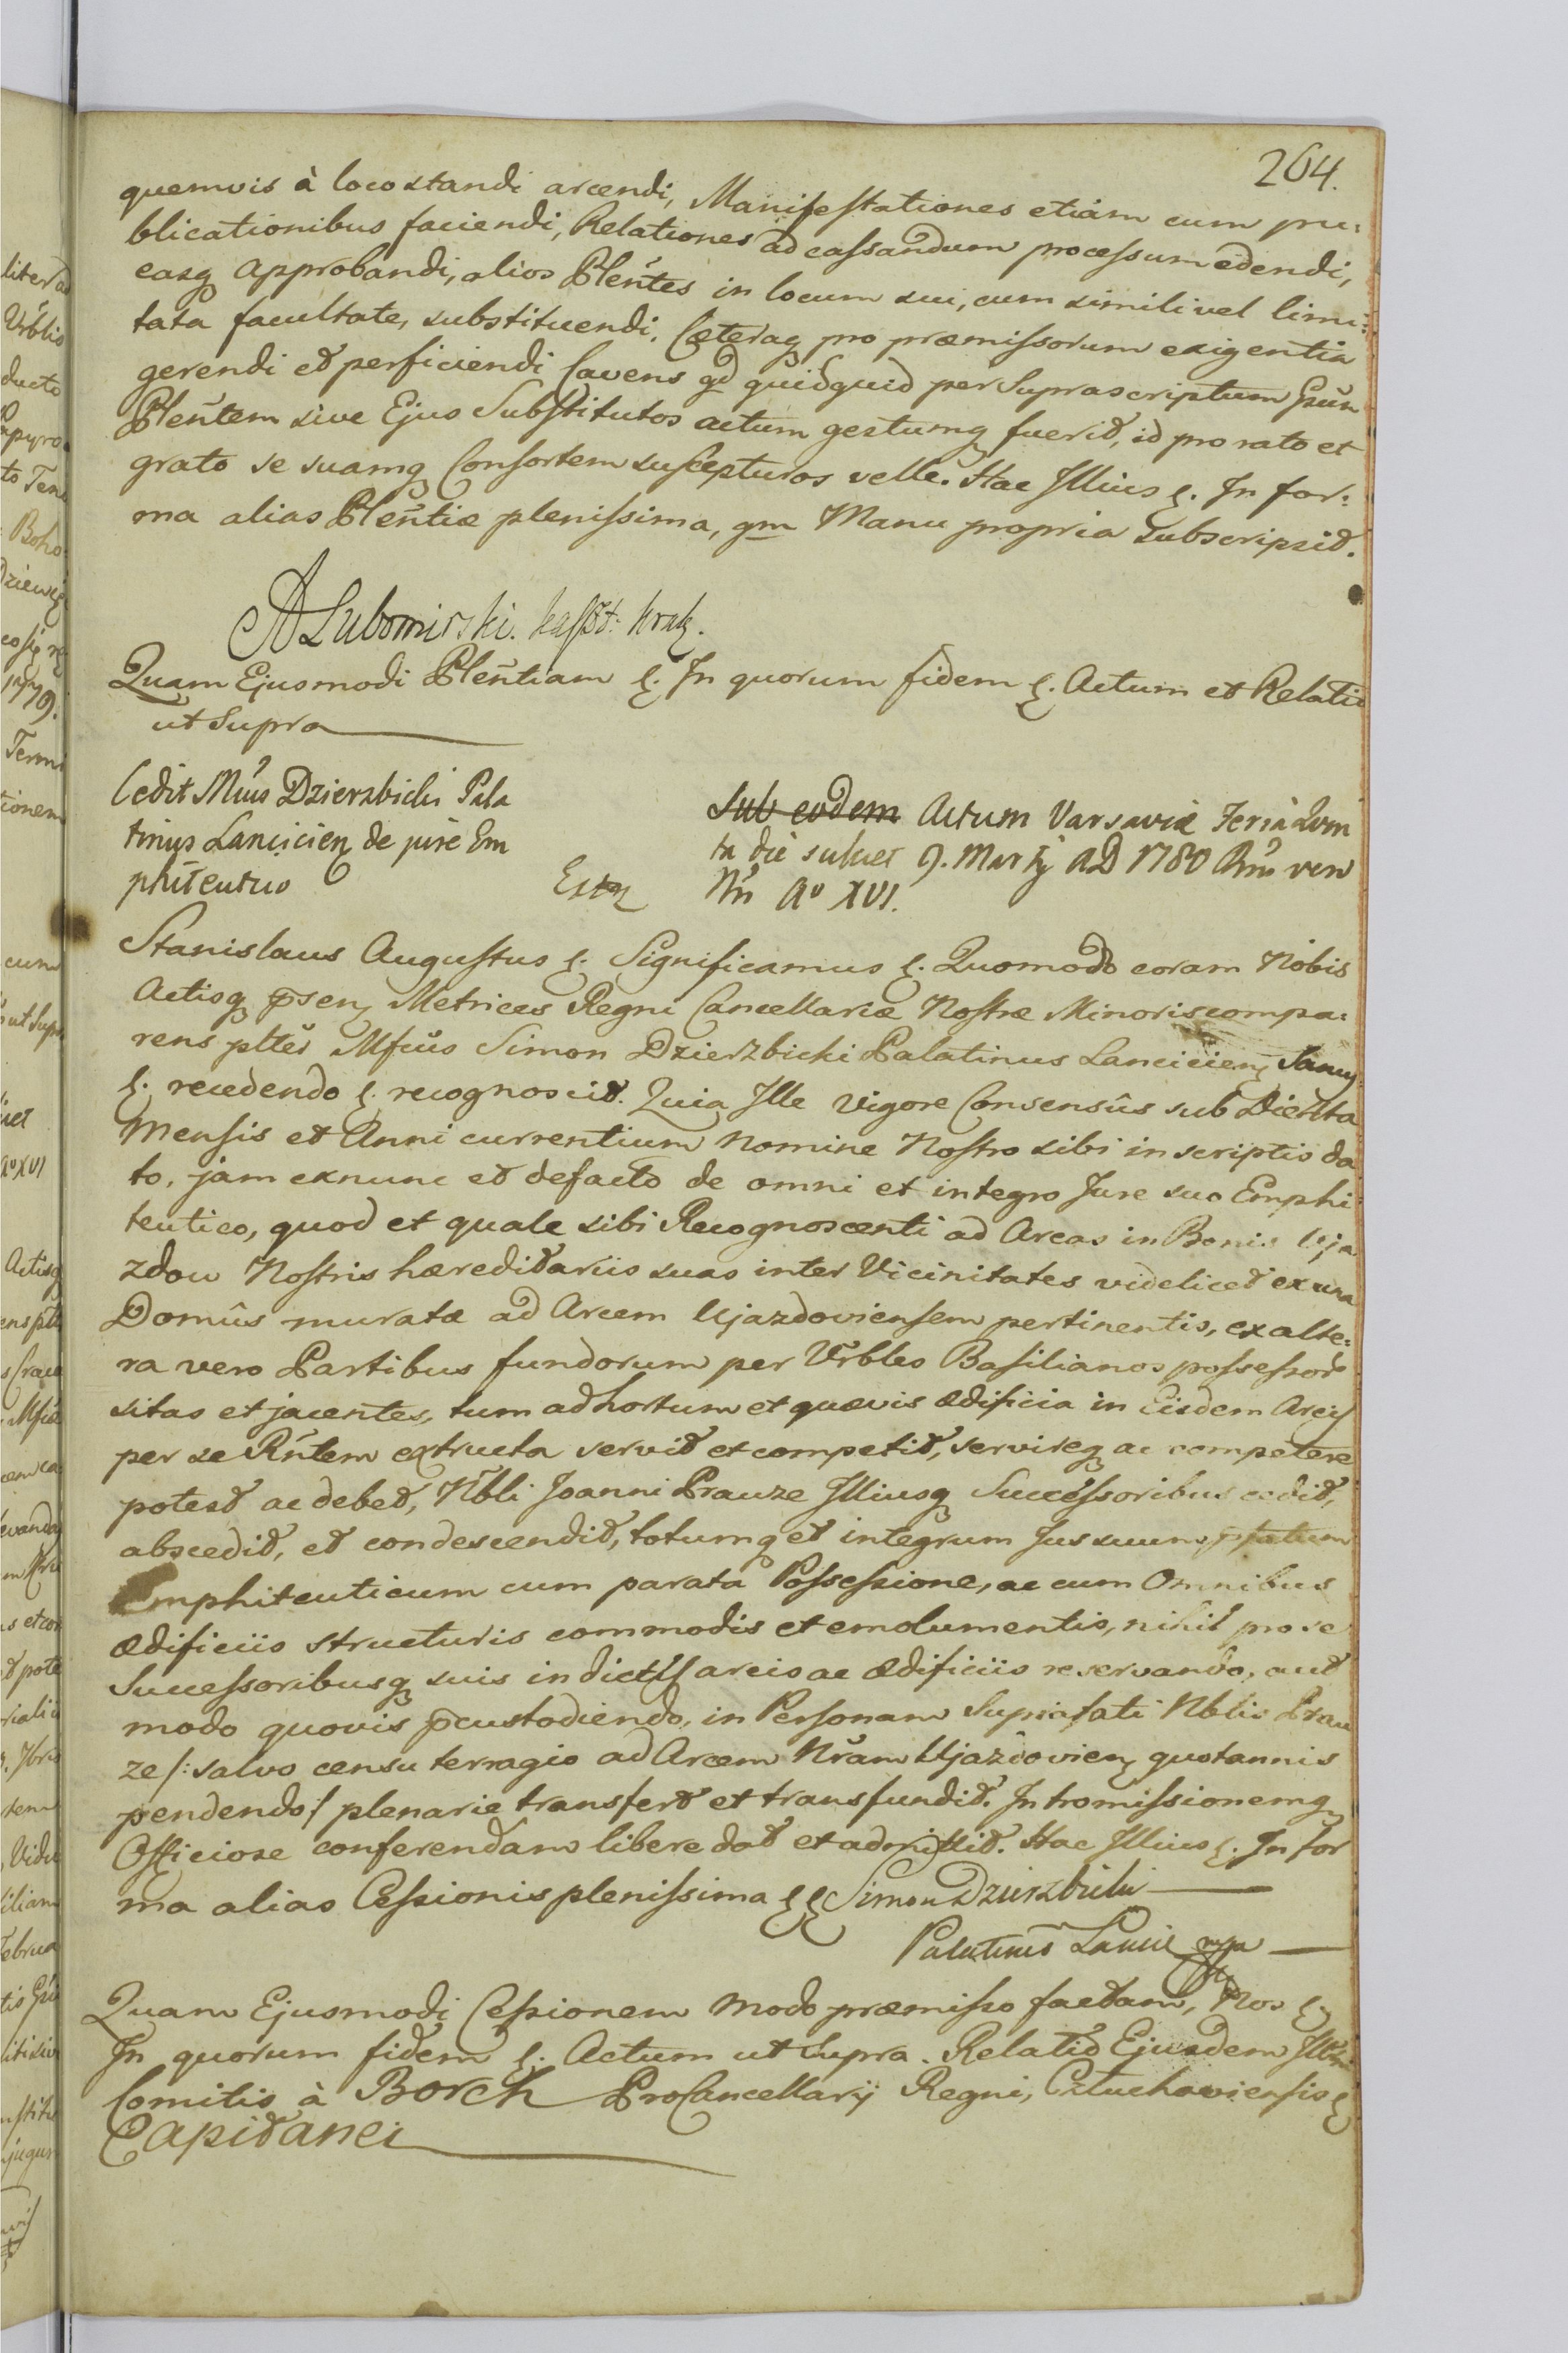 264.
quemvis à loco standi arcendi, Manifestationes etiam cum pu:
blicationibus faciendi, Relationes ad cassandum processum edendi,
easq approbandi, alios Pleñtes in locum sui, cum simili vel limi:
tata facultate, substituendi, Cæteraq pro præmissorum exigentia
gerendi et perficiendi Cavens qd quidquid per Suprascriptum Gñum
Pleñtem sive Ejus Substitutos actum gestumq fuerit, id pro rato et
grato se suamq Consortem suscepturos velle. Hac Illius &. In for:
ma alias Pleñtiæ plenissima, qm Manu propria subscripsit.
A Lubomirski. kasszt: krak.
Quam Ejusmodi Pleñtiam &. In quorum fidem &. Actum et Relatio
ut Supra
Cedit Mfius Dzierzbicki Pala
tinus Lancicien de jure Em
phiteutico
Extr
Sub eodem Actum Varsaviæ Feria Qvin
ta die scilicet 9. Martij AD 1780 Rñi vero
Nri Aº XVI.
Stanislaus Augustus &. Significamus &. Quomodo coram Nobis
Actisq psen Metrices Regni Cancellariæ Nostræ Minoris compa:
rens plter Mfcus Simon Dzierzbicki Palatinus Lancicien Sanus
&. recedendo &. recognoscit. Quia Ille vigore Consensûs sub Die
Mensis et Anni currentium Nomine Nostro sibi in scriptis da
to, jam exnunc et defacto de omni et integro Jure suo Emphi
teutico, quod et quale sibi Recognoscenti ad Areas in Bonis Uja
zdow Nostris hæreditariis suas inter Vicinitates videlicet ex una
Domûs muratæ ad Arcem Ujazdoviensem pertinentis, ex alte:
ra vero Partibus fundorum per Vrbles Basilianos possessor
sitas et jacentes, tum ad hortum et quævis ædificia in Eisdem Areis
per se Rñtem extructa servit et competit, servireq ac competere
potest ac debet, Nbli Joanni Prauze Illiusq Successoribus cedit,
abscedit, et condescendit, totumq et integrum Jus suum pfatum
Emphiteuticum cum parata Possessione, ac cum Omnibus
ædificiis structuris commodis et emolumentis, nihil pro se
Successoribusq suis in dictis areis ac ædificiis reservando, aut
modo quovis pcustodiendo, in Personam Suprafati Nblis Prau
ze /: salvo censu terragio ad Arcem Nram Ujazdovien quotannis
pendendo :/ plenarie transfert et transfundit. Intromissionemq
Officiose conferendam libere dat et admittit. Hac Illius &. In for
ma alias Cessionis plenissima && Simon Dzierzbicki
Palatinus Lancic mpp
Quam Ejusmodi Cessionem modo præmisso factam, Nos &
In quorum fidem &. Actum ut supra. Relatio Ejusdem Illmi
Comitis à Borch ProCancellarij Regni, Czluchoviensis &
Capitanei